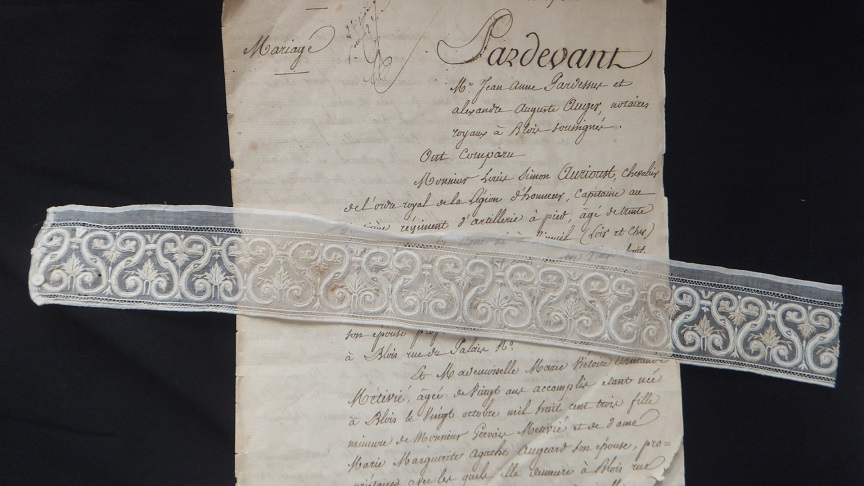 Mariage
Pardevant
Me. Jean Anne Pardessus et
alexandre Auguste Auger, notaires
royaux à Blois soussignés.
Ont Comparu
Monsieur Louis Simon Aurioust, chevalier
de l'ordre royal de la Légion d'honneur, Capitaine au
régiment d'artillerie à pied, âgé de trente
(Loir et Cher)
son épouse
à Blois rue du Palais No.
Et Mademoiselle Marie Victoire
Métivié, âgée de vingt ans accomplis étant née
à Blois le vingt octobre mil huit cent trois fille
mineure de Monsieur Gervais Métivié et de dame
Marie Marguerite Agathe Augeard son épouse, pro=
avec les quels elle demeure à Blois rue